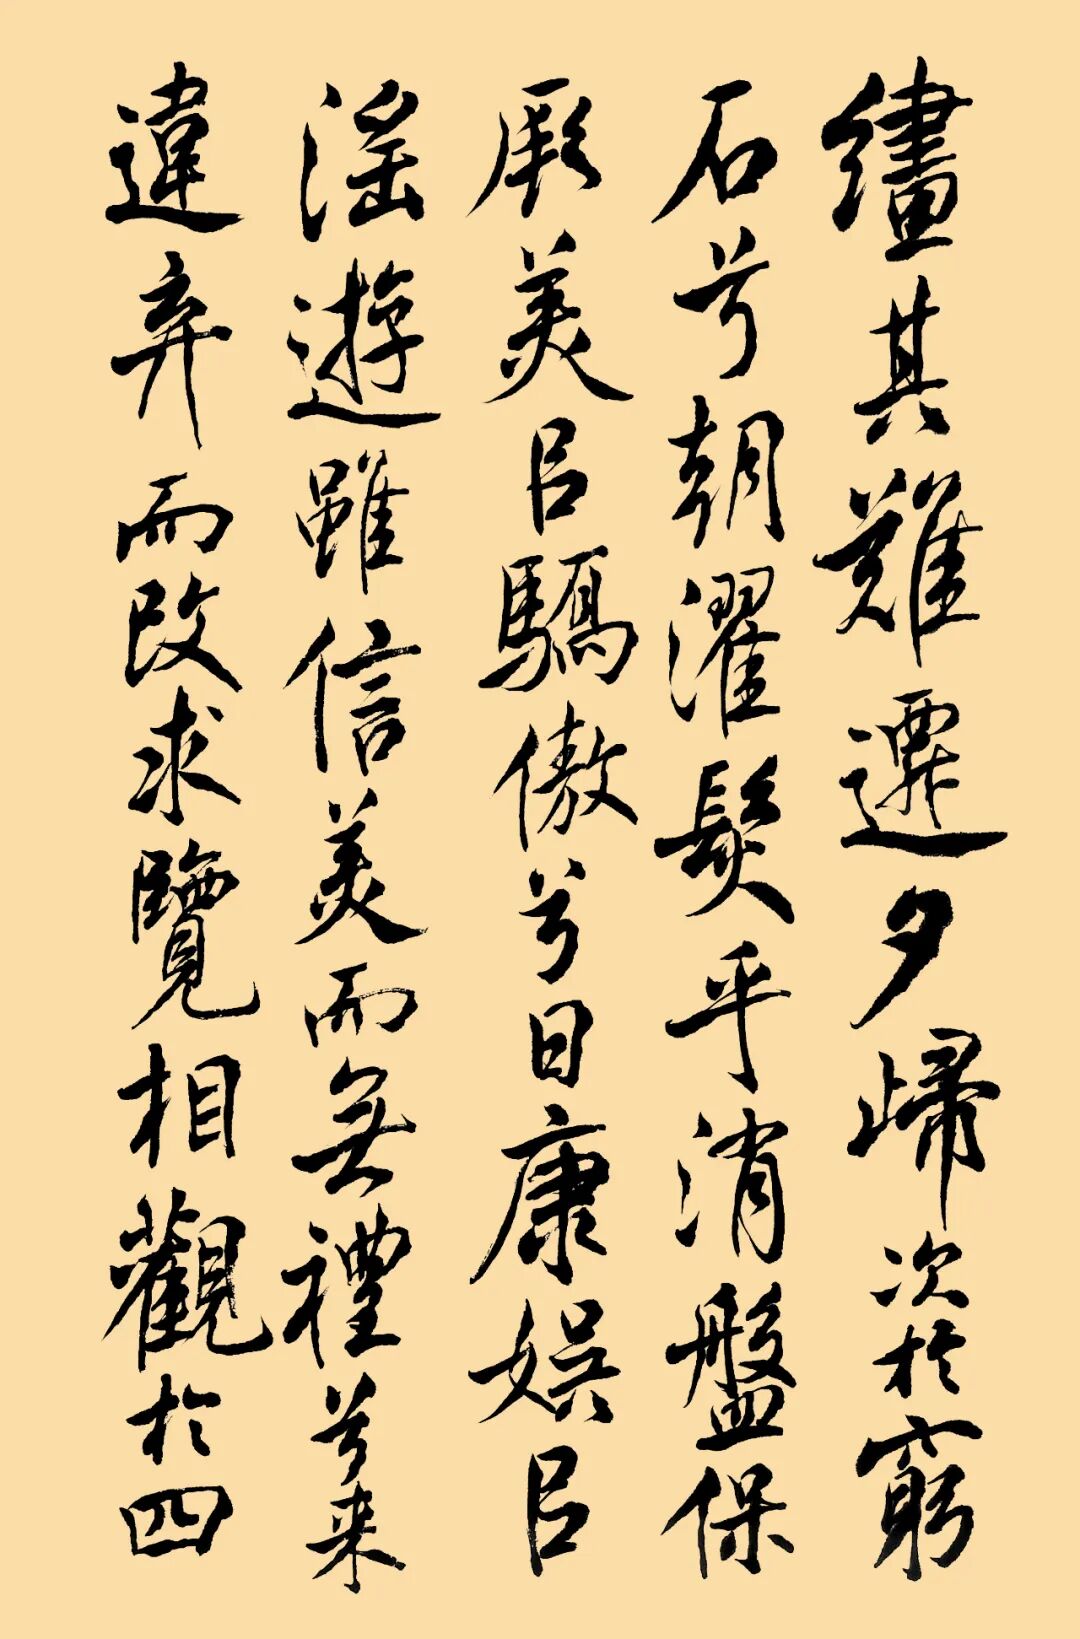 繣其難遷夕歸次於窮
石兮朝濯髮乎消盤保
厥美㠯驕傲兮日康娛㠯
滛遊雖信美而無禮兮来
違弃而改求覽相觀於四